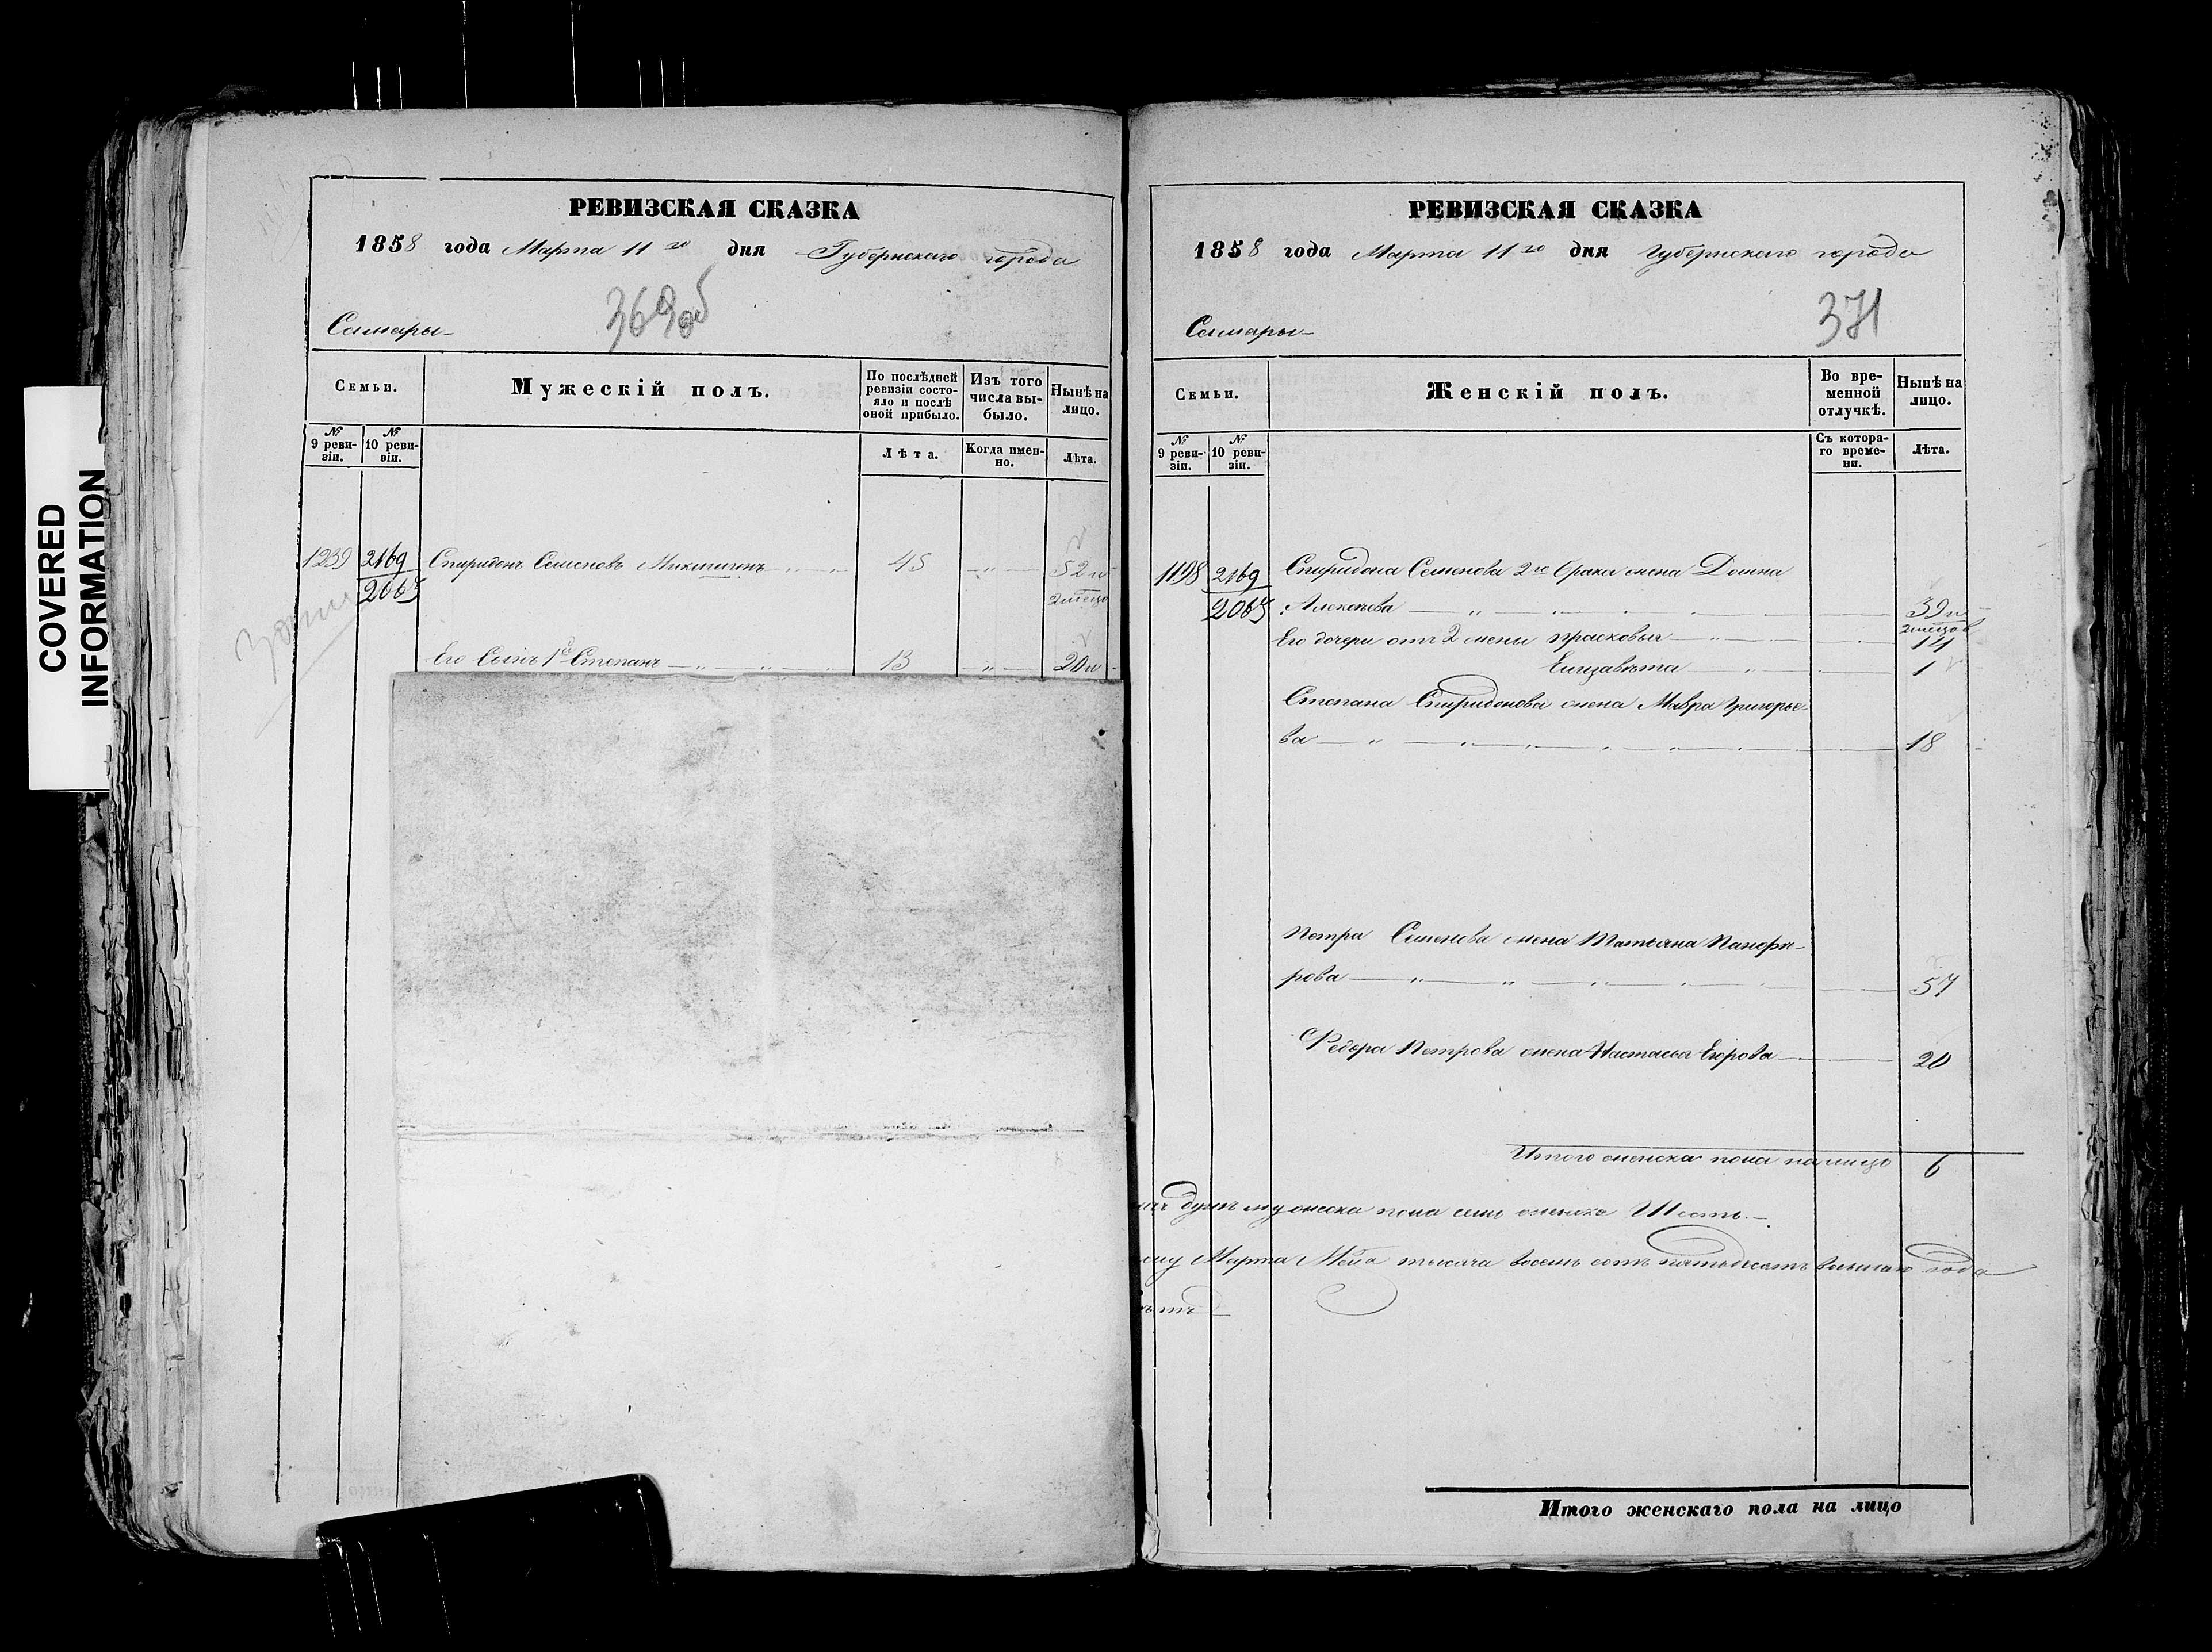 COVERED
INFORMATION
РЕВИЗСКАЯ СКАЗКА
1858 года Марта 11го дня Губернскаго города
Самары
369об
Семьи.
Мужескій полъ.
По послѣдней ревизіи состояло и послѣ оной прибыло.
Изъ того числа выбыло.
Нынѣ на лицо.
№ 9 ревизіи.
№ 10 ревизіи.
Лѣта.
Когда именно.
Лѣта.
1239 2169 Спиридонъ Семеновъ Микишинъ 45 52 и
2065
Его Сынъ 1й Степанъ 13 20 и
РЕВИЗСКАЯ СКАЗКА
1858 года Марта 11го дня Губернскаго города
Самары
371
Семьи.
Женскій полъ.
Во временной отлучкѣ.
Нынѣ на лицо.
№ 9 ревизіи.
№ 10 ревизіи.
Съ котораго времени.
Лѣта.
1198 2169 Спиридона Семенова 2го брака жена Домна
2065 Алексѣева 39 и
Его дочери отъ 2 жены Прасковья 14
Елизавѣта 1
Степана Спиридонова жена Мавра Григорье-
ва 18
Петра Семенова жена Татьяна Панфи-
рова 57
Федора Петрова жена Настасья Егорова 20
Итого женска пола налицо 6
душъ мужеска пола семь женска Шесть.
Марта Мца тысяча восемь сотъ пятьдесятъ восьмаго года
Итого женскаго пола на лицо